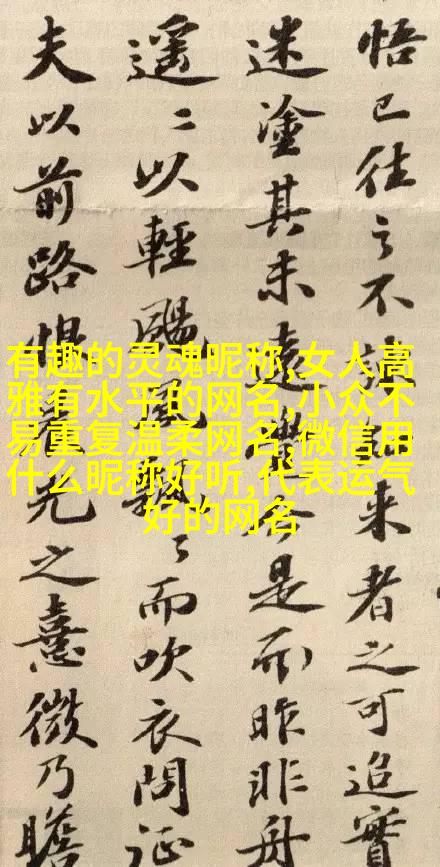 悟已往之不来者之可追實
迷塗其未遠是而昨非舟
遥〻以輕颺風飄〻而吹衣問征
夫以前路恨光之熹微乃瞻
有趣的灵魂昵称,女人高
雅有水平的网名,小众不
易重复温柔网名,微信用
什么昵称好听,代表运气
好的网名